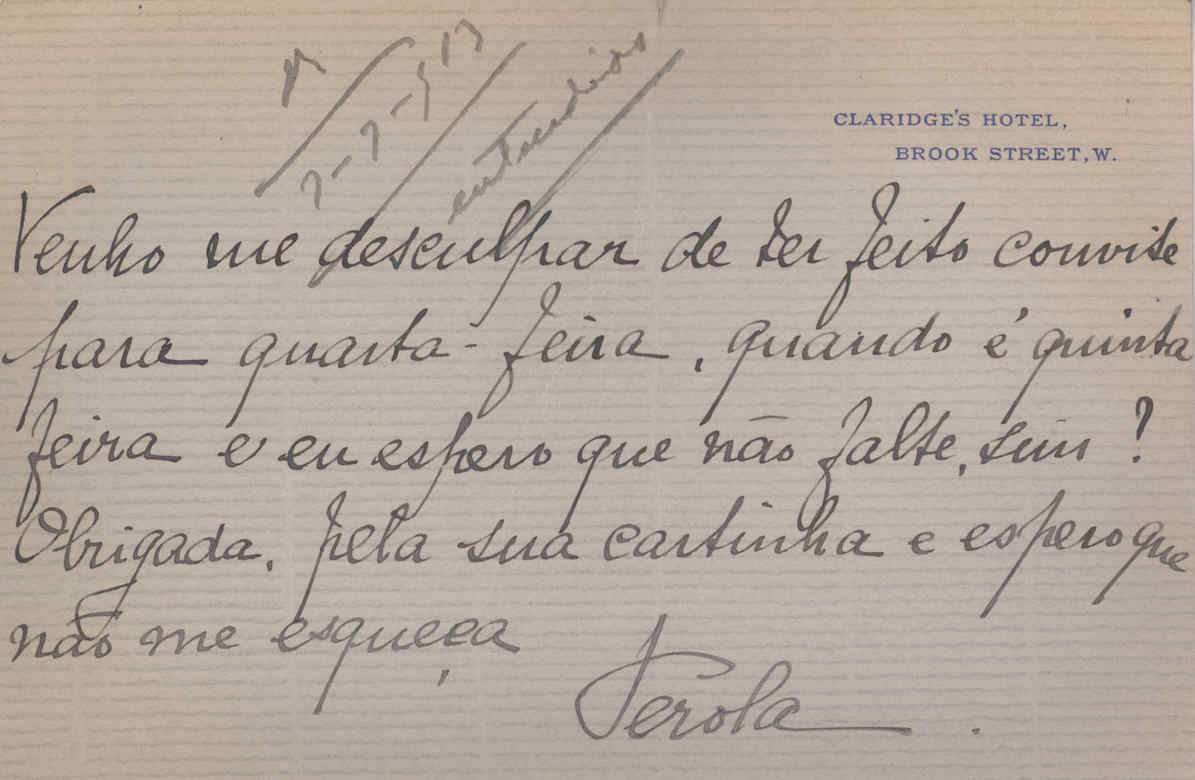 CLARIDGE'S HOTEL,
BROOK STREET, W.
Venho me desculpar de ter feito convite
para quarta-feira, quando é quinta
feira e eu espero que não falte, sim?
Obrigada, pela sua cartinha e espero que
não me esqueça
Pérola